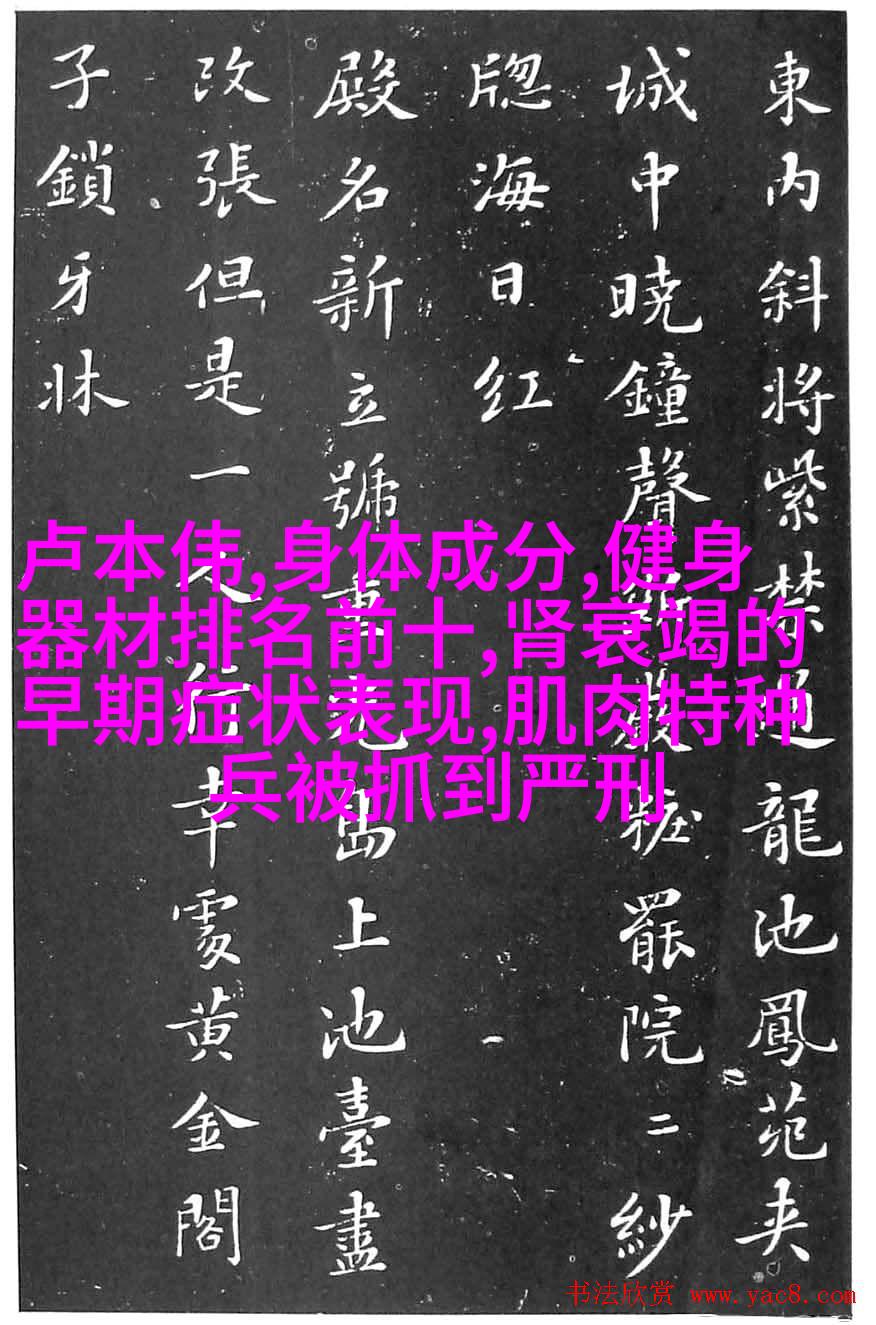 東内斜將紫禁通龍池鳳苑夾
城中曉鐘聲斷嚴粧罷院二紗
牕海日红
殿名新立號重光島上池臺盡
改張但是一人行幸處黄金閣
子鎖牙牀
卢本伟,身体成分,健身
器材排名前十,肾衰竭的
早期症状表现,肌肉特种
兵被抓到严刑
书法欣赏 www.yac8.com